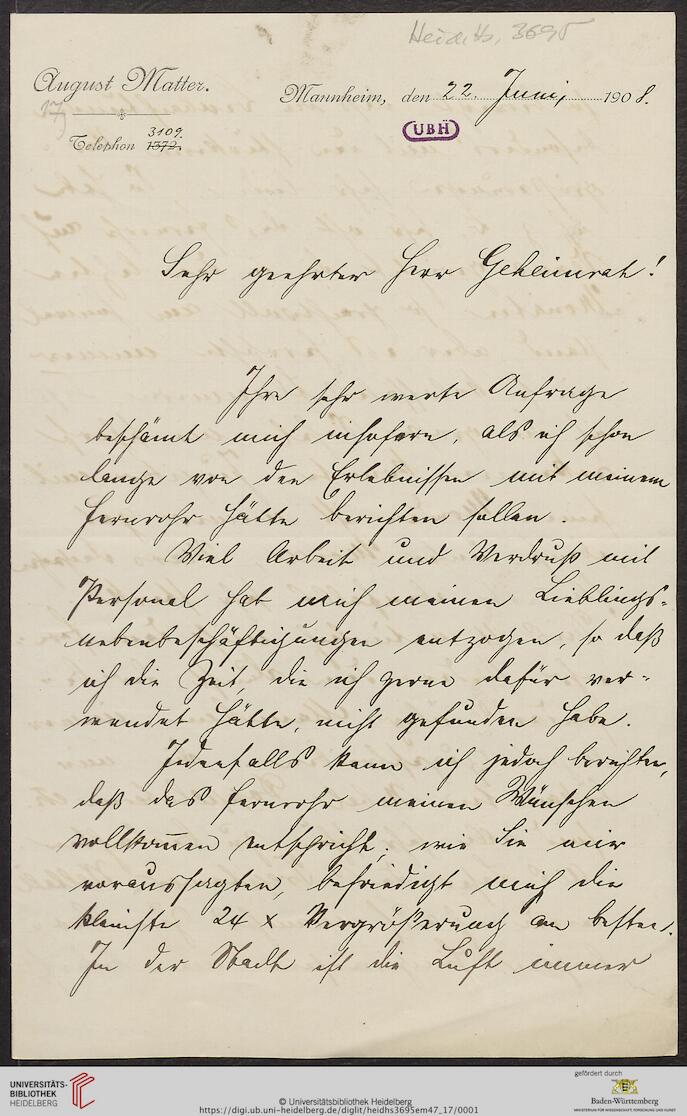 Heid. Hs. 3695
August Matter.
Mannheim, den 22. Juni, 1908.
17
UBH
3109.
Telephon 1372.
Sehr geehrter Herr Geheimrat!
Ihre sehr werte Anfrage
beschämt mich insofern, als ich schon
lange von den Erlebnissen mit meinem
Fernrohr hätte berichten sollen.
Viel Arbeit und Verdruß mit
Personal hat mich meinen Lieblings-
nebenbeschäftigungen entzogen, so daß
ich die Zeit, die ich gerne dafür ver-
wendet hätte, nicht gefunden habe.
Jedenfalls kann ich jedoch berichten,
daß das Fernrohr meinen Wünschen
vollkom̅en entspricht; wie Sie mir
voraussagten, befriedigt mich die
kleinste 24 x Vergrößerung am besten.
In der Stadt ist die Luft immer
UNIVERSITÄTS-
BIBLIOTHEK
HEIDELBERG
© Universitätsbibliothek Heidelberg
https://digi.ub.uni-heidelberg.de/diglit/heidhs3695em47_17/0001
gefördert durch
Baden-Württemberg
MINISTERIUM FÜR WISSENSCHAFT, FORSCHUNG UND KUNST